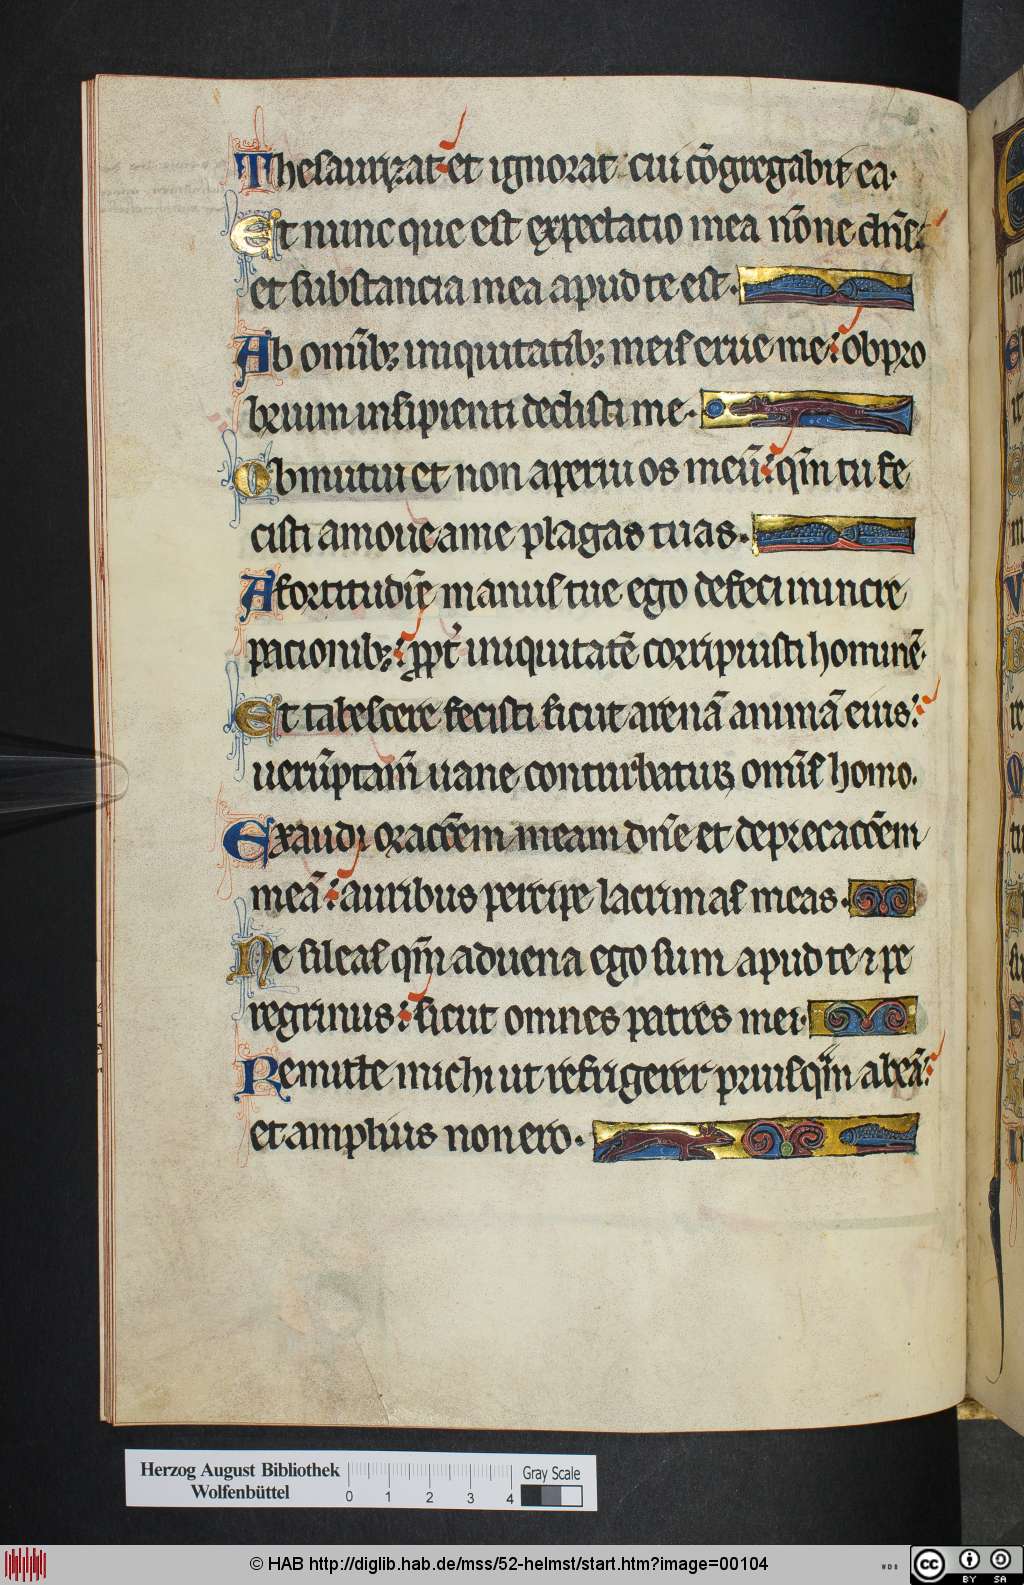 Thesaurizat et ignorat cui cōgregabit ea.
Et nunc que est expectacio mea nōne dn̄s:
et substancia mea apud te est.
Ab om̄ibꝫ iniquitatibꝫ meis erue me: obpro
brium insipienti dedisti me.
Obmutui et non aperui os meū: qm̄ tu fe
cisti amoue a me plagas tuas.
A fortitudīe manus tue ego defeci in incre
pacionibꝫ: ꝓpt̓ iniquitatē corripuisti hominē.
Et tabescere fecisti sicut arenā animā eius:
uerūptam̄ uane conturbatur om̄is homo.
Exaudi orac̄cem meam dn̄e et deprecac̄cem
meā: auribus percipe lacrimas meas.
Ne sileas qm̄ aduena ego sum apud te ⁊ pe
regrinus: sicut omnes patres mei.
Remitte michi ut refrigerer priusqm̄ abeā:
et amplius non ero.
Herzog August Bibliothek
Wolfenbüttel
0 1 2 3 4
Gray Scale
© HAB http://diglib.hab.de/mss/52-helmst/start.htm?image=00104
WDB
cc BY SA